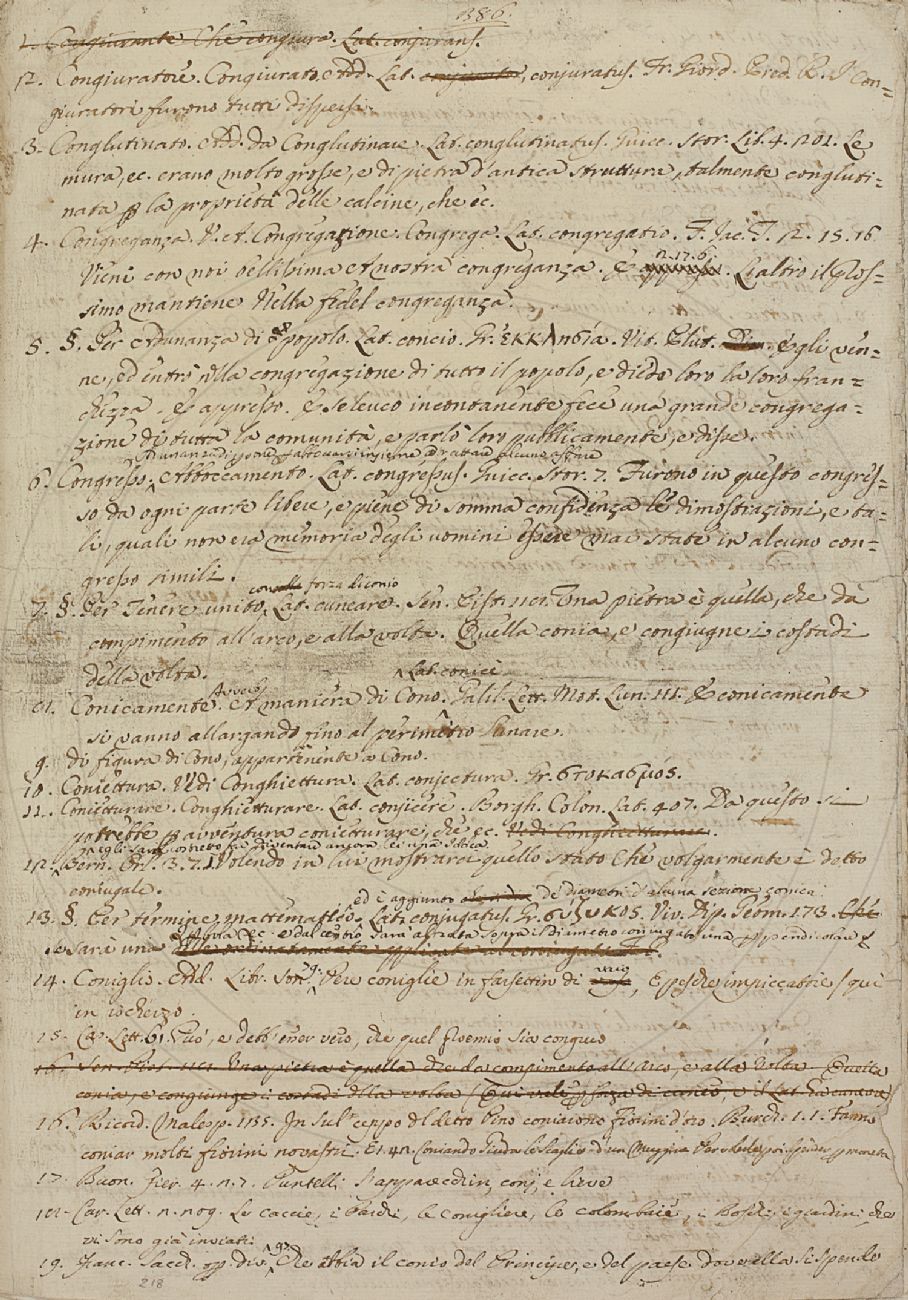 386.
1. Congiurante Che congiura. Lat. conjurans.
12. Congiuratore. Congiurato. Add. Lat. conjurator, conjuratus. Fr. Giord. Pred. R. I Con=
giuratori furono tutti dispersi.
3. Conglutinato. Add. da Conglutinare. Lat. conglutinatus. Guicc. Stor. Lib. 4. 201. Le
mura, ec. erano molto grosse, e di pietra d'antica struttura, talmente congluti=
nata p la proprietà delle calcine, che ec.
4. Congreganza. V. A. Congregazione. Congrega. Lat. congregatio. F. Jac. T. 2. 15. 16
Vieni con noi bellissima A nostra congreganza. E 2. 17. 6. L'altro il Pros=
simo mantiene Nella fedel congreganza.
5. §. Per Adunanza di popolo. Lat. concio. Gr. ἐκκλησία. Vit. Plut. Egli ven=
ne, ed entrò nlla congregazione di tutto il popolo, e diede loro la loro fran=
chezza. E appresso. E Seleuco incontanente fece una grande congrega=
zione di tutta la comunità, e parlò loro pubblicamente, e disse.
Adunanza di persone insieme, trattare
6. Congresso. Abboccamento. Lat. congressus. Guicc. Stor. 7. Furono in questo congres=
so da ogni parte libere, e piene di somma confidenza le dimostrazioni, e ta=
li, quali non era memoria degli uomini essere mai state in alcuno con=
gresso simili.
forza di conio
7. §. Per Tenere unito, Lat. cuneare. Sen. Pist. Una pietra è quella, che dà
compimento all'arco, e alla volta. Quella conia, e congiugne i costadi
della volta. Lat. conicè
Avverb.
Conicamente. A maniera di Cono. Galil. Lett. Mot. Lun. E conicamente
si vanno allargando fino al perimetro lunare.
9. di figura di Cono, appartenente a Cono.
10. Coniettura. Vedi Conghiettura. Lat. conjectura. Gr. στοχασμός.
11. Conietturare. Conghietturare. Lat. conjicere. Borgh. Colon. Lat. 407. Da questo si
potrebbe p avventura conietturare, che ec. Vedi Conghietturare.
12. Bern. Orl. 3. 7. 1 Volendo in lui mostrarci quello stato Che volgarmente è detto
coniugale.
ed è aggiunto de' diametri d'alcuna sezione conica:
13. §. Per termine mattematico. Lat. conjugatus. Gr. σύζυγος. Viv. Dip. Geom. 173. Che
se sarà una ec. e dal centro sarà alzata sopra il diametro coniugato una ppendicolare
14. Coniglio. Add. Libr. Son. Pare coniglie in farsettin di vaio, E pesche impiccatoie / qui
in ischerzo.
15. Car. Lett. 61. Può, e debb'esser vero, che quel proemio sia congruo
16. Sen. Pist. Una pietra è quella che da compimento all'arco, e alla volta Quella
conia, e congiunge i costadi dlla volta / Qui vale p forza di conio, e il Lat. ha cuneare
16. Ricord. Malesp. 155. In sul ceppo dl detto Pino coniarono fiorini d'oro. Burch. 1. 1. Fanno
coniar molti fiorini novastri. Coniando
17. Buon. Fier. 4. Puntelli S'apparecchin, conj, e lieve
18. Car. Lett. Le caccie, i Parchi, le conigliere, le colombaie, i boschi, i giardini che
vi sono già inviati.
19. Franc. Sacch. op. div. Che abbia il conio del Principe, e del paese dov'ella si spende
218